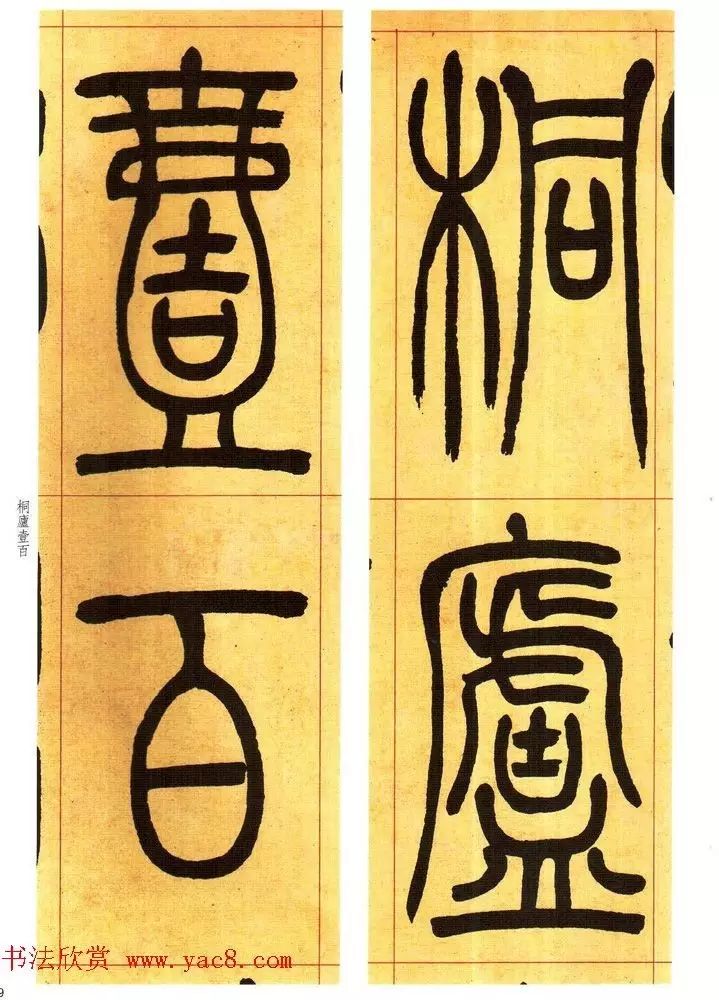 桐廬
壹百
桐廬壹百
书法欣赏 www.yac8.com
9